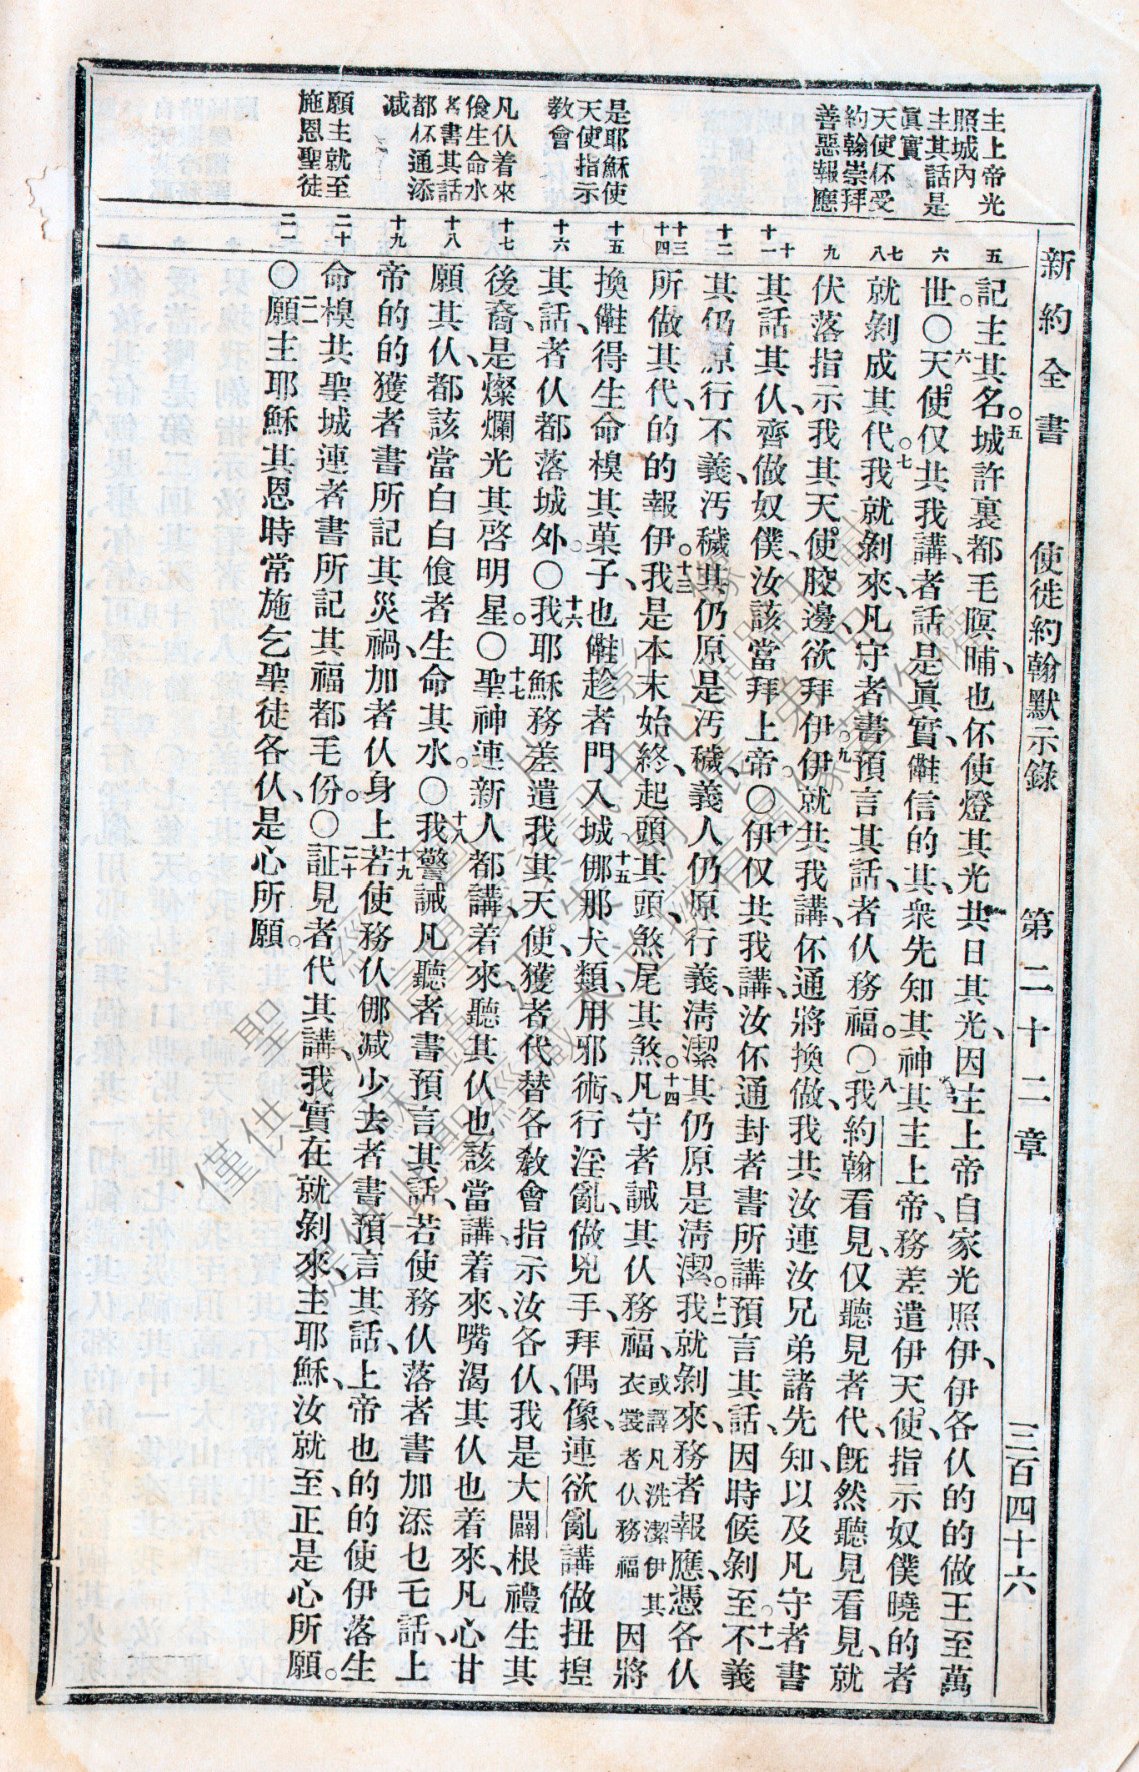 新約全書 使徒約翰默示錄 第二十二章 三百四十六
主上帝光
照城內
主其話是
眞實
天使伓受
約翰崇拜
善惡報應
是耶穌使
天使指示
教會
凡仈着來
飡生命水
者書其話
都伓通添
减
願主就至
施恩聖徒
五 六 七 八 九 十 十一 十二 十三 十四 十五 十六 十七 十八 十九 二十 二一
記主其名。五城許裏都毛暝晡、也伓使燈其光共日其光、因主上帝自家光照伊、伊各仈的的做王至萬
世。〇六天使仅共我講、者話是眞實、𨅔信的、其衆先知其神其主上帝、務差遣伊天使、指示奴僕曉的者
就剝成其代。七我就剝來、凡守者書預言其話、者仈務福。〇八我約翰看見仅聽見者代、既然聽見看見、就
伏落指示我其天使骹邊、欲拜伊。九伊就共我講、伓通將換做、我共汝連汝兄弟諸先知、以及凡守者書
其話其仈、齊做奴僕、汝該當拜上帝。〇十伊仅共我講、汝伓通封者書所講預言其話、因時候剝至。十一不義
其仍原行不義、汚穢其仍原是汚穢、義人仍原行義、清潔其仍原是清潔。十二我就剝來、務者報應、憑各仈
所做其代的的報伊。十三我是本末始終、起頭其頭、煞尾其煞。十四凡守者誡其仈務福、或譯凡洗潔伊其衣裳者仈務福因將
換𨅔得生命樖其菓子、也𨅔趁者門入城。十五㑚那犬類、用邪術、行淫亂、做兇手、拜偶像、連欲亂講做扭揑
其話、者仈都落城外。〇十六我耶穌務差遣我其天使、獲者代替各敎會指示汝各仈、我是大闢根、禮生其
後裔、是燦爛光其啓明星。〇十七聖神連新人都講、着來、聽其仈也該當講、着來、嘴渴其仈也着來、凡心甘
願其仈、都該當白白飡者生命其水。〇十八我警誡凡聽者書預言其話、若使務仈落者書加添乜乇話、上
帝的的獲者書所記其災禍、加者仈身上。十九若使務仈㑚减少去者書預言其話、上帝也的的使伊落生
命樖共聖城連者書所記其福都毛份。〇二十証見者代其講、我實在就剝來、主耶穌汝就至、正是心所願。
〇二一願主耶穌其恩時常施乞聖徒各仈、是心所願。